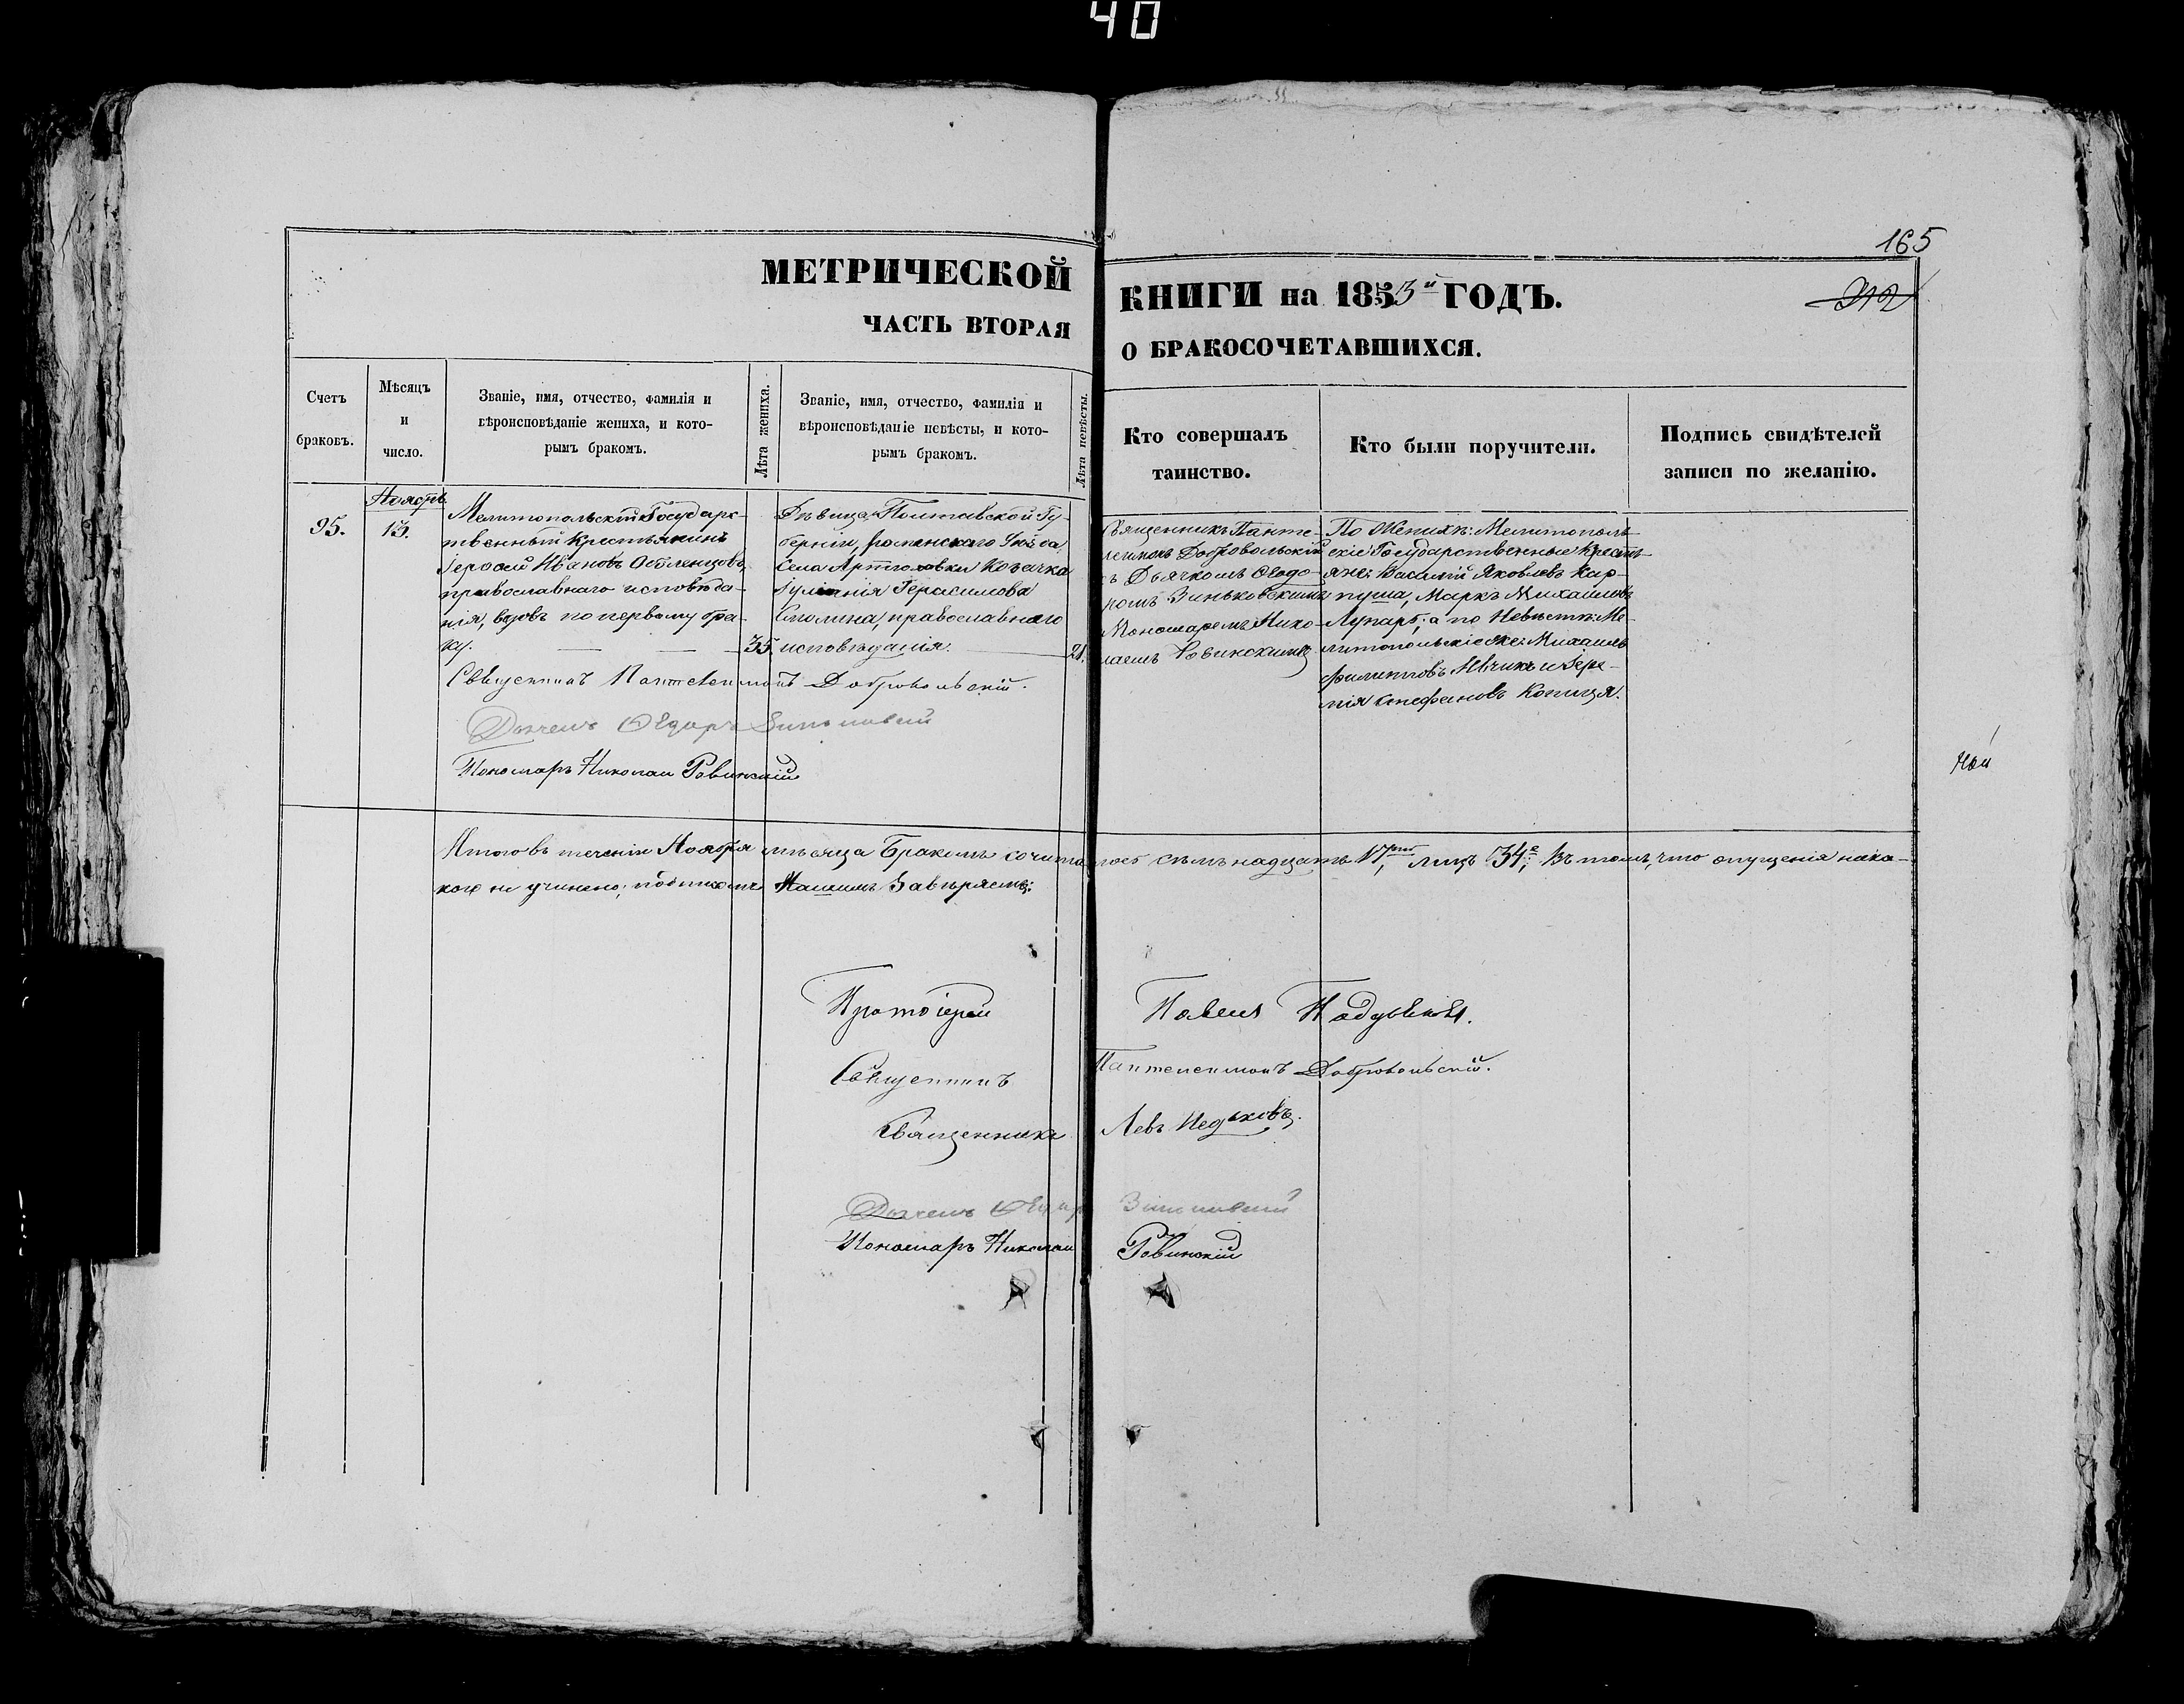 40
165
312
МЕТРИЧЕСКОЙ
ЧАСТЬ ВТОРАЯ
КНИГИ на 1853й ГОДЪ.
О БРАКОСОЧЕТАВШИХСЯ.
Счетъ
браковъ.
Мѣсяцъ
и
число.
Званіе, имя, отчество, фамилія и
вѣроисповѣданіе жениха, и кото-
рымъ бракомъ.
Лѣта жениха.
Званіе, имя, отчество, фамилія и
вѣроисповѣданіе невѣсты, и кото-
рымъ бракомъ.
Лѣта невѣсты.
Кто совершалъ
таинство.
Кто были поручители.
Подпись свидѣтелей
записи по желанію.
95.
Ноябрь.
13.
Мелитопольскій Государс-
твенный Крестьянинъ
Іерофей Ивановъ
православнаго исповѣда-
нія, вдовъ по первому бра-
ку.
35.
Дѣвица, Полтавской Гу-
берніи, Роменскаго Уѣзда,
Села Артполовки Козачка
Іуліанія Герасимова
православнаго
исповѣданія.
21.
Священникъ Панте-
леимонъ Добровольскій
съ Дьячкомъ Ѳеодо-
ромъ Зиньковскимъ
Пономаремъ Нико-
лаемъ Ровинскимъ
По Женихѣ: Мелитополь-
скіе Государственные Кресть-
яне: Василій Яковлевъ Кар-
пуша, Маркъ Михайловъ
а по Невѣстѣ: Ме-
литопольскіе же: Михаилъ
Филипповъ и Іере-
мія Стефановъ Копица.
Священникъ Пантелеимонъ Добровольскій.
Дьячекъ Ѳеодоръ Зиньковскій
Пономарь Николай Ровинскій
Итого въ теченіи Ноября мѣсяца Бракомъ сочиталось сѣмьнадцать 17, лицъ 34; Въ томъ, что опущенія ника-
кого не учинено; подписомъ Нашимъ Завѣряемъ:
Протоіерей Павелъ
Священникъ Пантелеимонъ Добровольскій.
Священникъ Левъ
Дьячекъ Ѳеодоръ Зиньковскій
Пономарь Николай Ровинскій